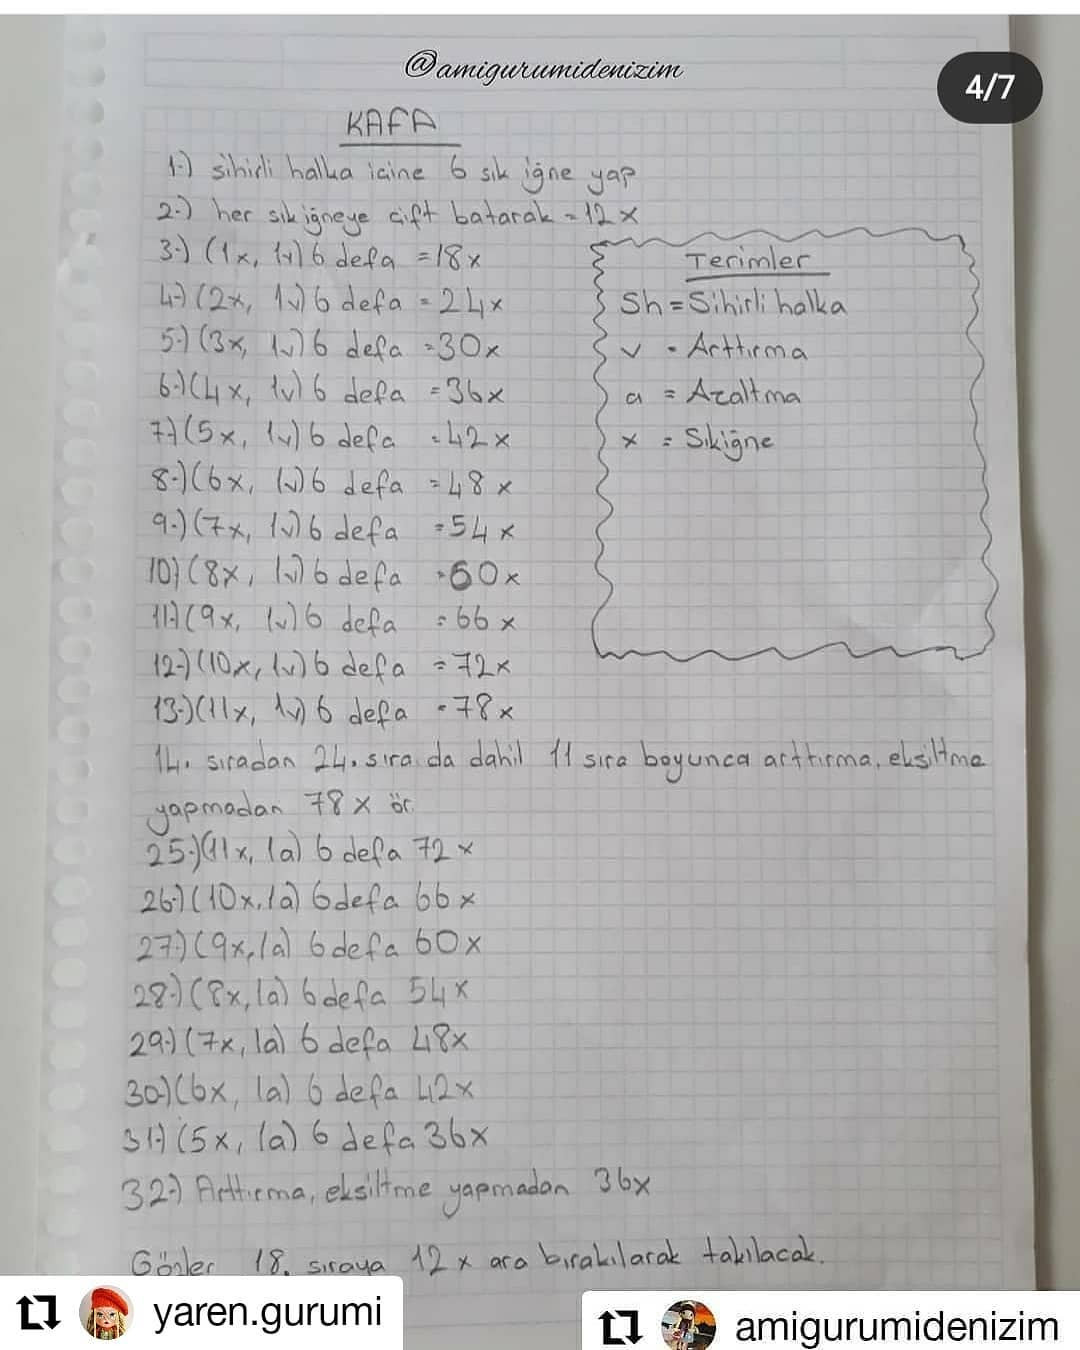 @amigurumidenizim
4/7
KAFA
1-) sihirli halka icine 6 sık iğne yap
2-) her sık iğneye çift batarak = 12 x
3-) (1x, 1v) 6 defa = 18x
4-) (2x, 1v) 6 defa = 24x
5-) (3x, 1v) 6 defa = 30x
6-) (4x, 1v) 6 defa = 36x
7-) (5x, 1v) 6 defa = 42x
8-) (6x, 1v) 6 defa = 48x
9-) (7x, 1v) 6 defa = 54x
10) (8x, 1v) 6 defa = 60x
11-) (9x, 1v) 6 defa = 66x
12-) (10x, 1v) 6 defa = 72x
13-) (11x, 1v) 6 defa = 78x
Terimler
Sh = Sihirli halka
v = Arttırma
a = Azaltma
x = Sıkiğne
14. sıradan 24. sıra da dahil 11 sıra boyunca arttırma, eksiltme
yapmadan 78 x ör
25-) (11x, 1a) 6 defa 72x
26-) (10x, 1a) 6 defa 66x
27-) (9x, 1a) 6 defa 60x
28-) (8x, 1a) 6 defa 54x
29-) (7x, 1a) 6 defa 48x
30-) (6x, 1a) 6 defa 42x
31-) (5x, 1a) 6 defa 36x
32-) Arttırma, eksiltme yapmadan 36x
Gözler 18. sıraya 12x ara bırakılarak takılacak.
yaren.gurumi
amigurumidenizim